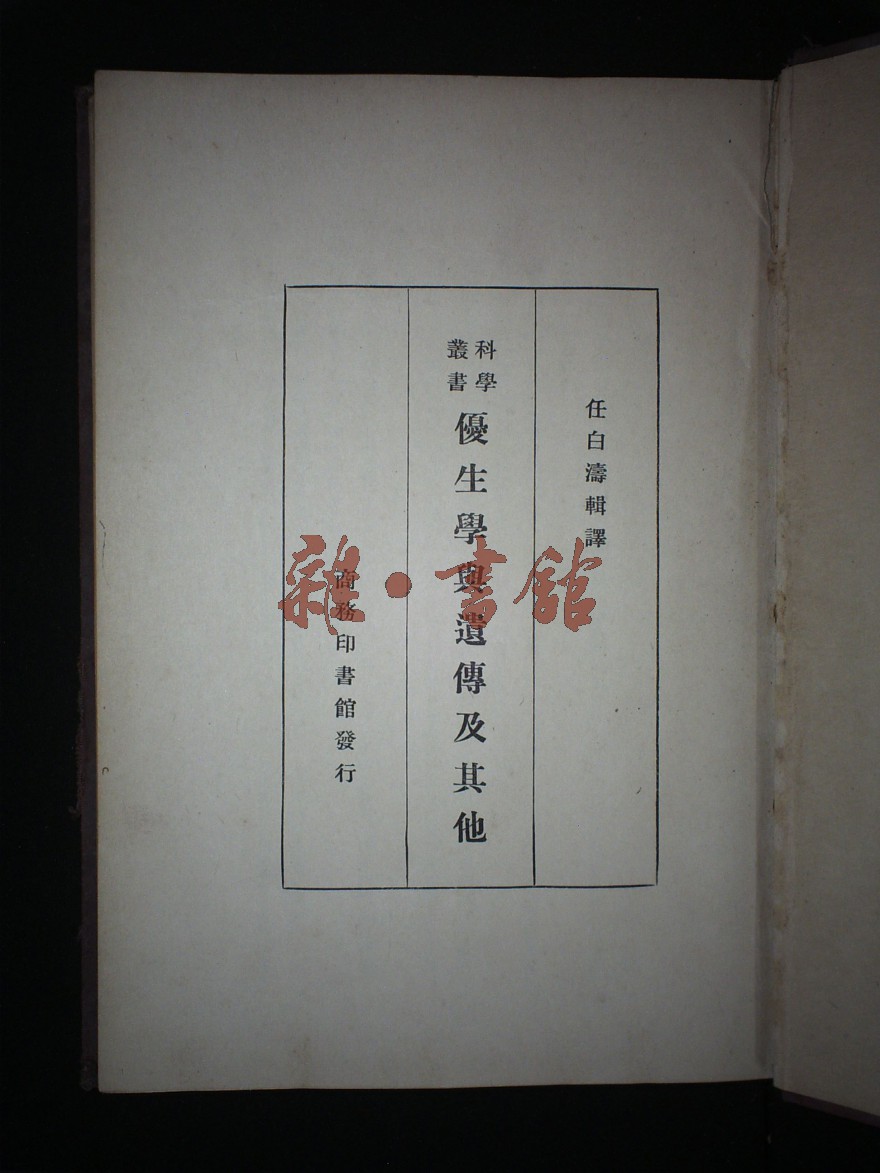 任白濤輯譯
科學
叢書
優生學與遺傳及其他
商務印書館發行
雜·書館